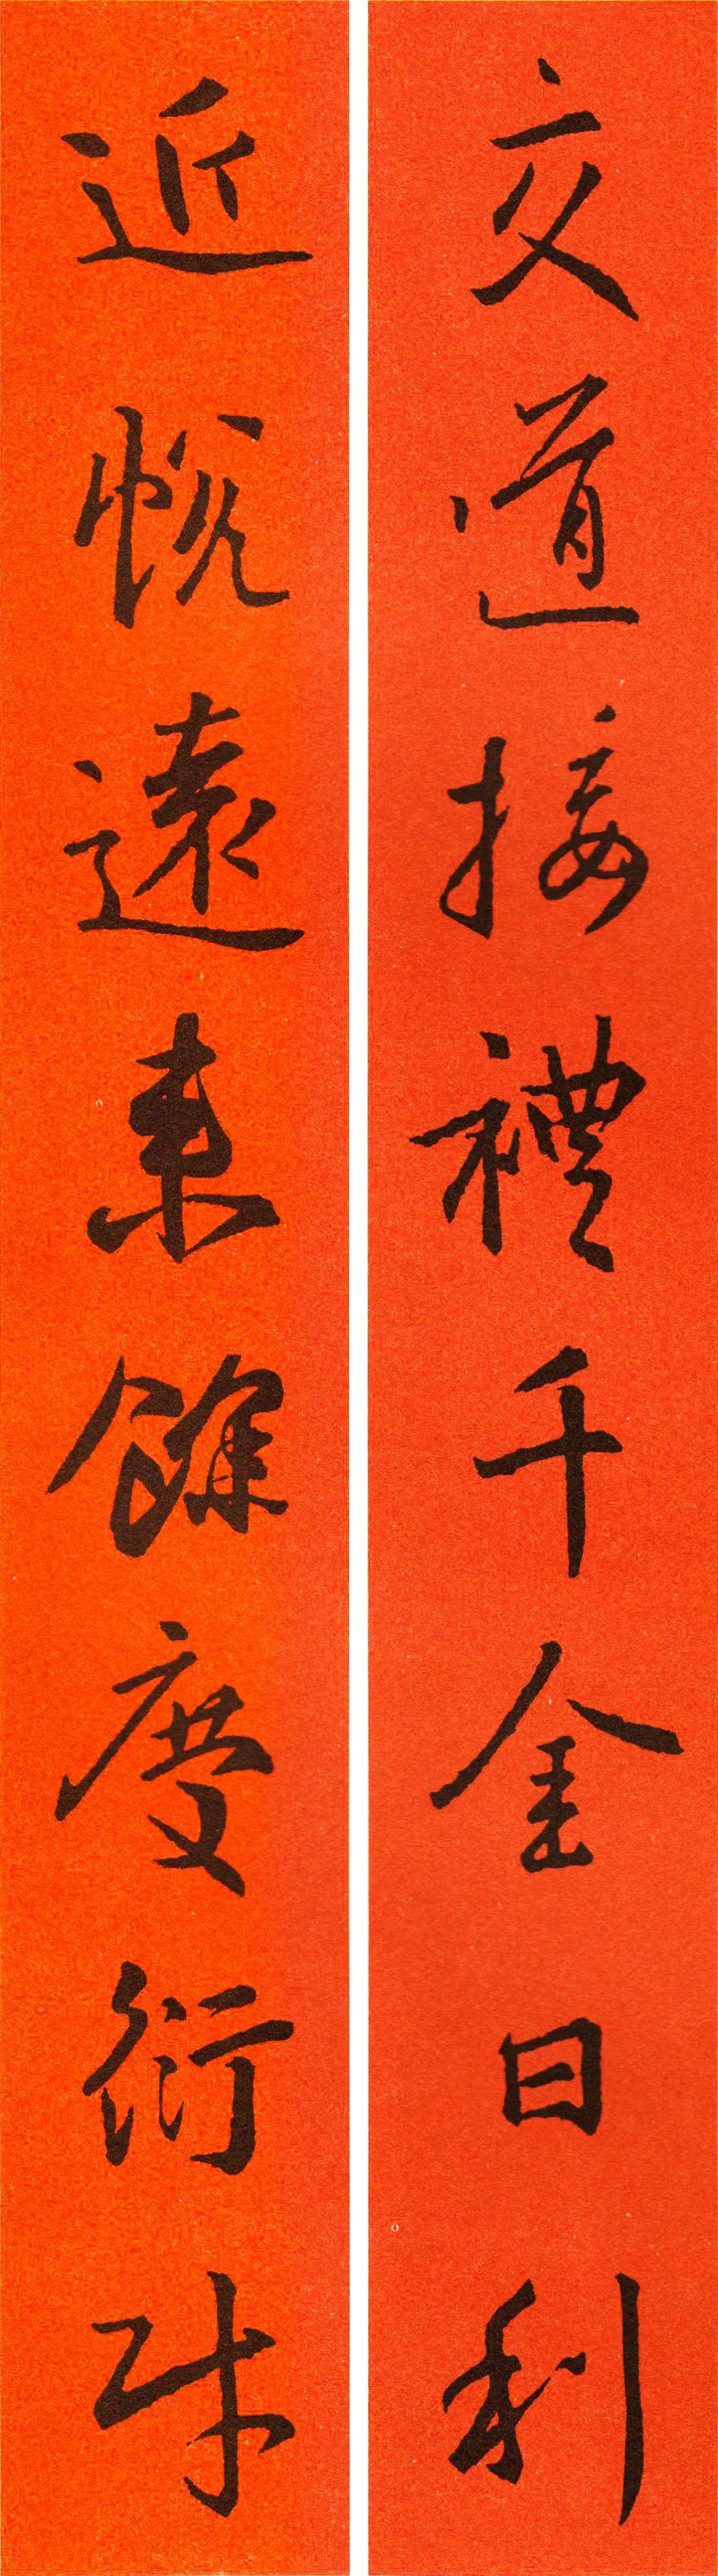 交道接禮千金日利
近悅遠來餘慶衍